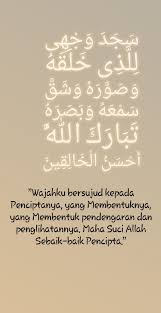 سَجَدَ وَجْهِى
لِلَّذِى خَلَقَهُ
وَصَوَّرَهُ وَشَقَّ
سَمْعَهُ وَبَصَرَهُ
تَبَارَكَ اللّٰهُ
اَحْسَنُ الْخَالِقِيْنَ
"Wajahku bersujud kepada
Penciptanya, yang Membentuknya,
yang Membentuk pendengaran dan
penglihatannya, Maha Suci Allah
Sebaik-baik Pencipta."